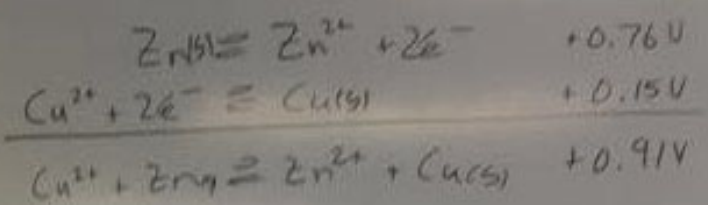 Zn(s) ⇌ Zn²⁺ + 2e⁻ +0.76 V
Cu²⁺ + 2e⁻ ⇌ Cu(s) +0.15V
Cu²⁺ + Zn(s) ⇌ Zn²⁺ + Cu(s) +0.91V